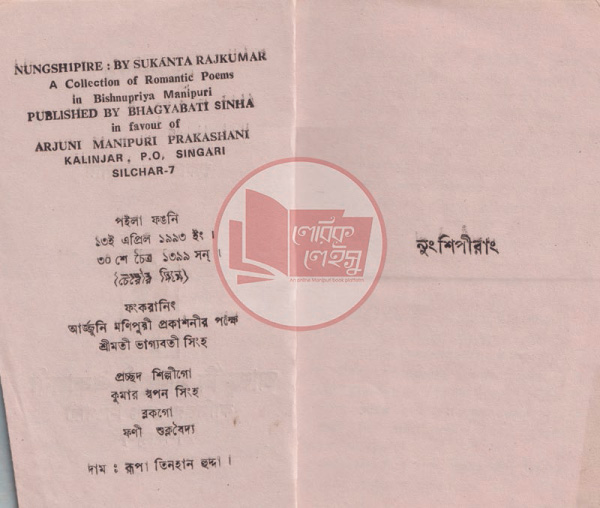 NUNGSHIPIRE : BY SUKANTA RAJKUMAR
A Collection of Romantic Poems
in Bishnupriya Manipuri
PUBLISHED BY BHAGYABATI SINHA
in favour of
ARJUNI MANIPURI PRAKASHANI
KALINJAR, P.O, SINGARI
SILCHAR-7
পইলা ফঙনি
১৩ই এপ্রিল ১৯৯৩ ইং ।
৩০ শে চৈত্র ১৩৯৯ সন্ ।
ফংকরানিং
আর্জ্জুনি মণিপুরী প্রকাশনীর পক্ষে
শ্রীমতী ভাগ্যবতী সিংহ
প্রচ্ছদ শিল্পীগো
কুমার স্বপন সিংহ
ব্লকগো
ফণী শুক্লবৈদ্য
দাম : রূপা তিনহান হুদ্দা ।
নুংশিপীরাং
পৌরিক
লেইসু